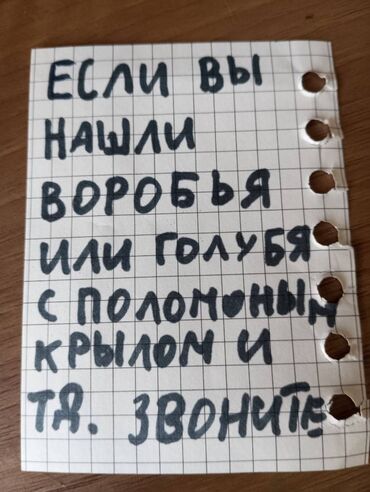 ЕСЛИ ВЫ
НАШЛИ
ВОРОБЬЯ
ИЛИ ГОЛУБЯ
С ПОЛОМОНЫМ
КРЫЛОМ И
ТД. ЗВОНИТЕ